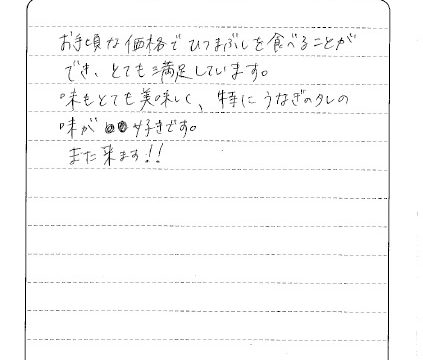 お手頃な価格でひつまぶしを食べることが
でき、とても満足しています。
味もとても美味しく、特にうなぎのタレの
味が好きです。
また来ます!!